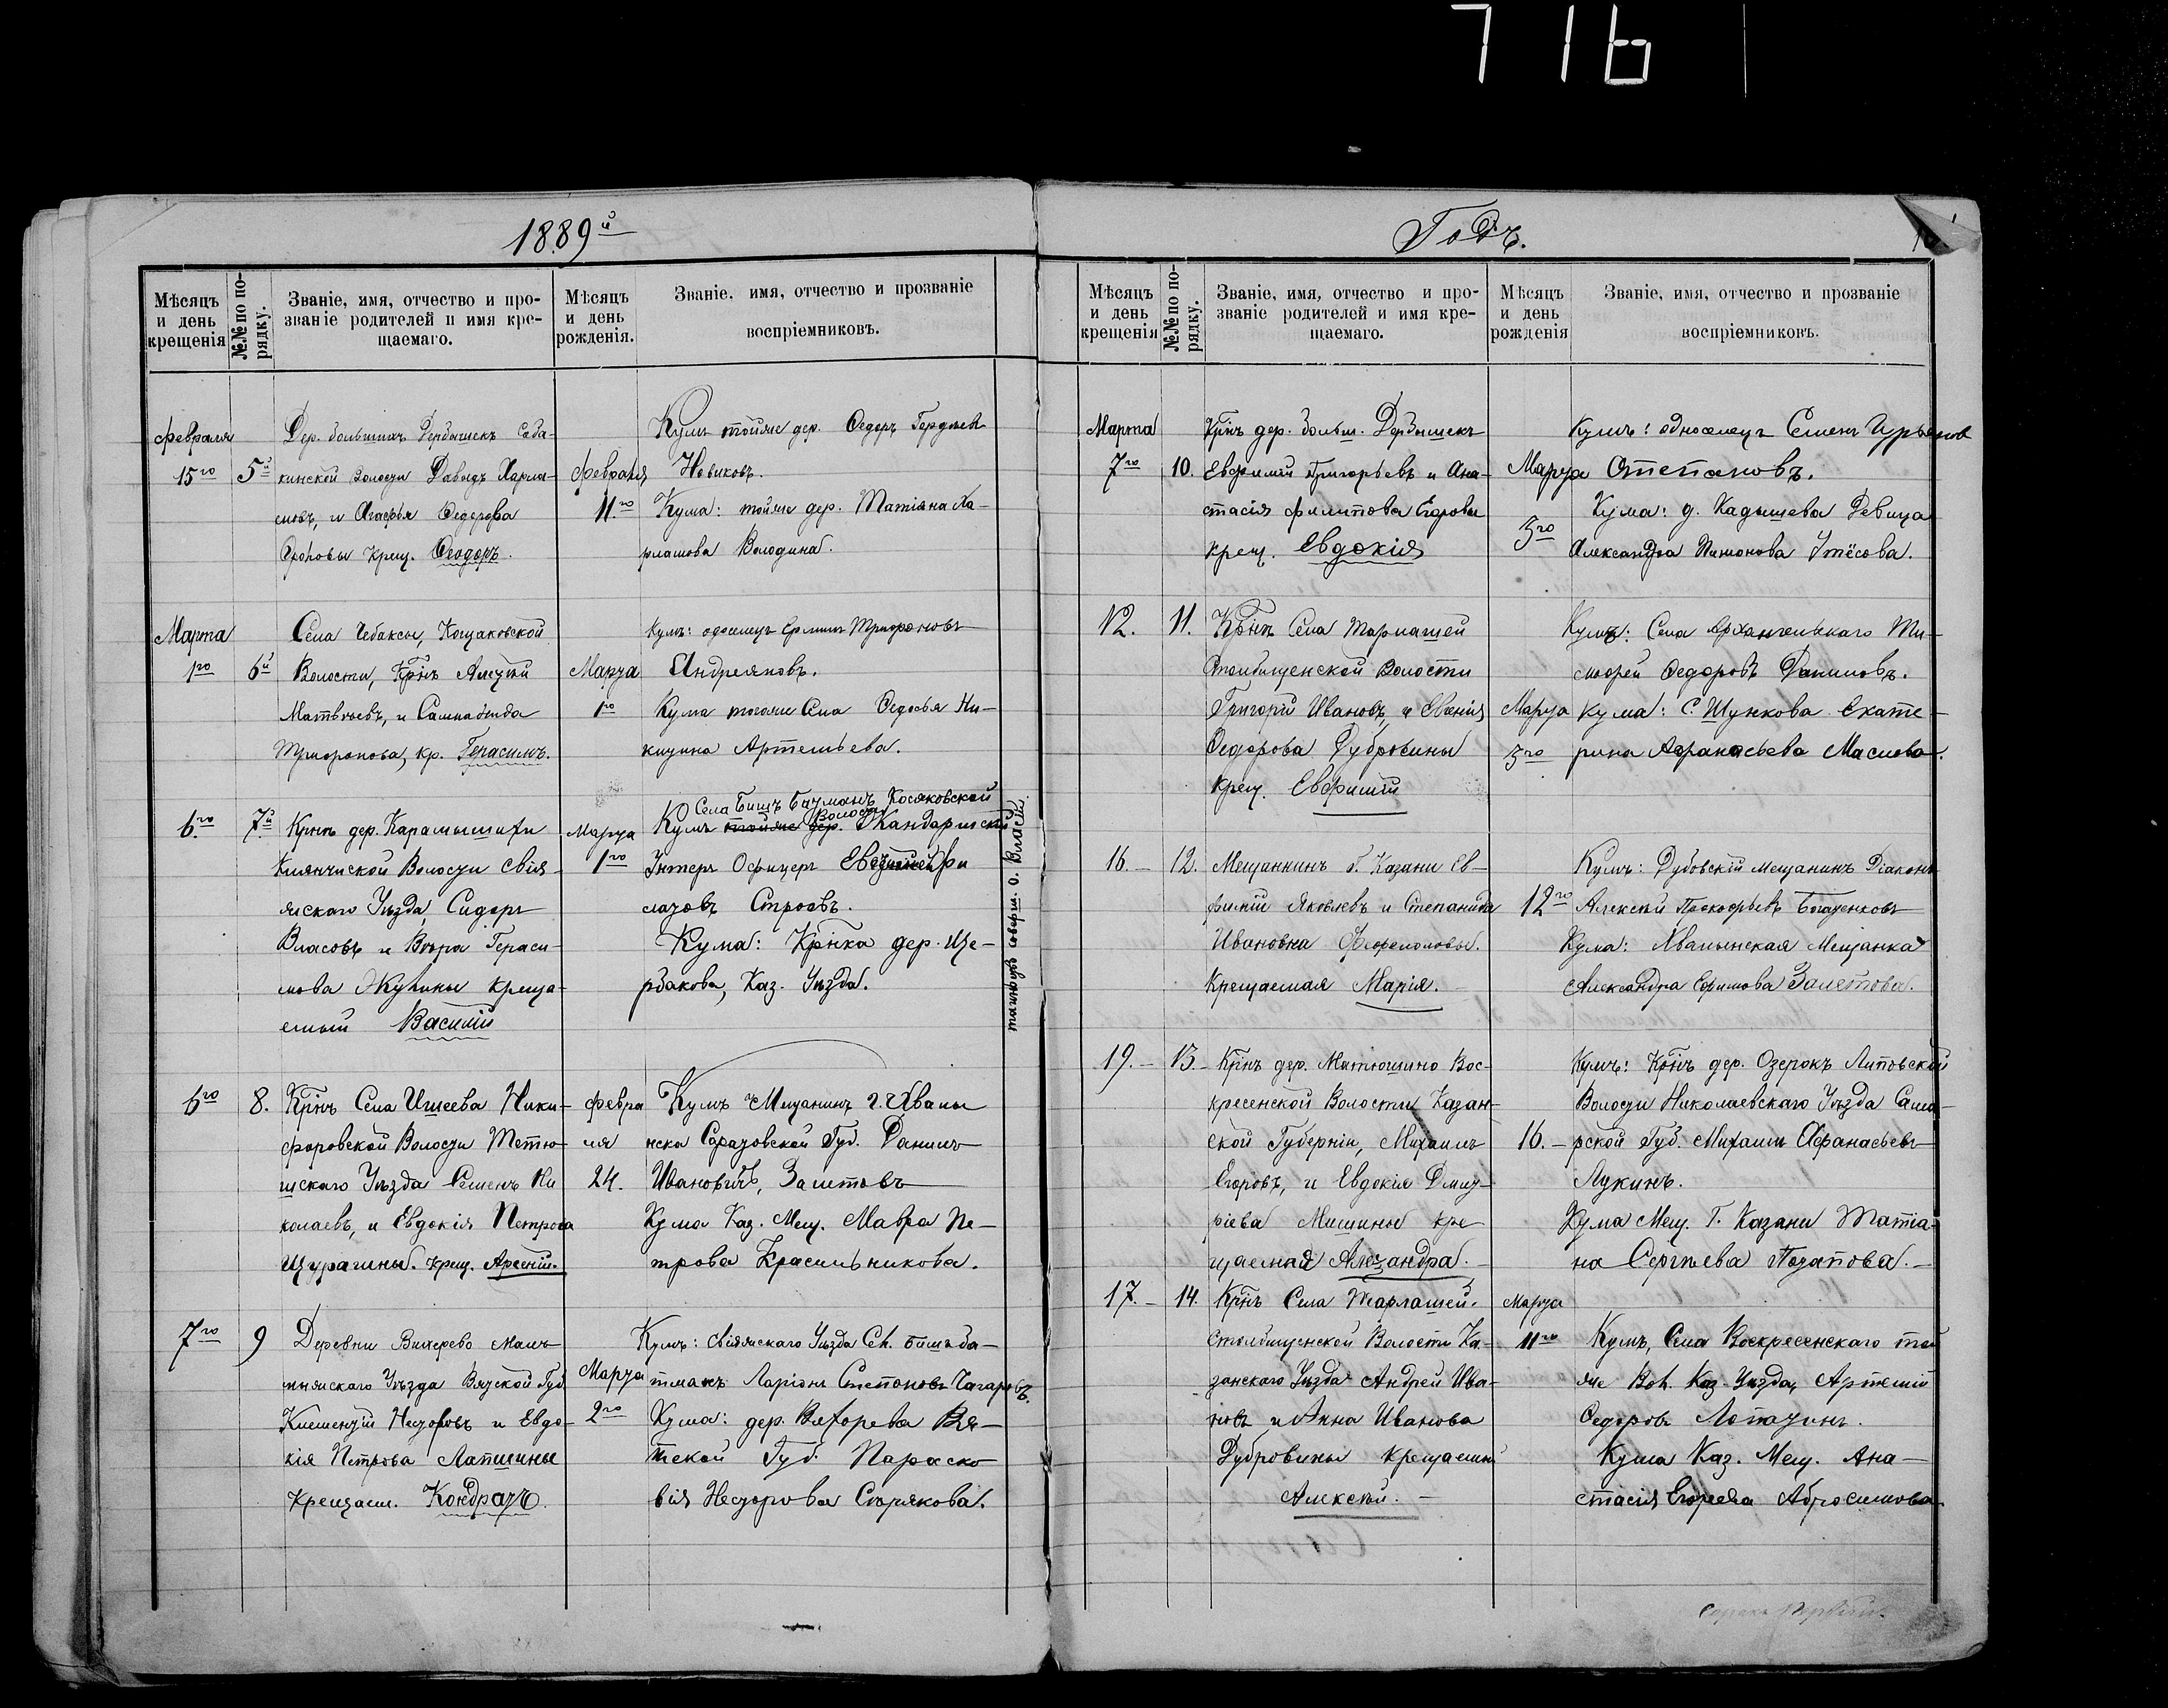 716
1889й
Мѣсяцъ и день крещенія
№№ по порядку.
Званіе, имя, отчество и прозваніе родителей и имя крещаемаго.
Мѣсяцъ и день рожденія.
Званіе, имя, отчество и прозваніе воспріемниковъ.
Февраля
15го
5й
Дер. большихъ Дербышекъ Соба-
кинской Волости Давыдъ Харла-
мовъ, и Агафья Ѳедорова
крещ. Ѳеодоръ.
Февраля
11.го
Кумъ тойже дер. Ѳедоръ
Новиковъ.
Кума: тойже дер. Татіяна Ха-
рламова Володина.
Марта
1го
6й
Села Чебаксы, Кощаковской
Волости, Крнъ Алексѣй
Матвѣевъ, и
Трифонова, кр. Герасимъ.
Марта
1го
Кумъ: Трифоновъ
Андреяновъ.
Кума тогоже Села Ѳедосья Ни-
китина Артемьева.
6го
7й
Крнъ дер. Карамышихи
Волости Свія-
жскаго Уѣзда Сидоръ
Власовъ и Вѣра Гераси-
мова Жуковы креща-
емый Василій
Марта
1го
Села Бишъ Батманъ Косяковской
Волости
Кумъ тойже дер. Жандармскій
Унтеръ Офицеръ
Строевъ.
Кума: Крнка дер. Ще-
рбакова, Каз. Уѣзда.
таинство соверш. о. Власій.
6го
8.
Крнъ Села Ишеева Ники-
форовской Волости Тетю-
шскаго Уѣзда Семенъ Ни
колаевъ, и Евдокія Петрова
Шурагины. крещ. Арсеній.
Февра
ля
24.
Кумъ Мещанинъ г. Хвалы
нска Саратовской Губ. Данилъ
Ивановичъ, Заметовъ
Кума Каз. Мещ. Мавра Пе-
трова Красильникова.
7го
9
Деревни Вихарево Мал-
мыжскаго Уѣзда Вятской Губ
Клементій Несторовъ и Евдо-
кія Петрова Лапшины
Крещаем. Кондратъ.
Марта
2го
Кумъ: Свіяжскаго Уѣзда Сел. Бишъ ба-
тманъ Ларіонъ Степановъ Чагаровъ.
Кума: дер. Вихорева Вя-
тской Губ. Параско
вія Несторова Старякова.
Годъ.
Мѣсяцъ и день крещенія
№№ по порядку.
Званіе, имя, отчество и прозваніе родителей и имя крещаемаго.
Мѣсяцъ и день рожденія
Званіе, имя, отчество и прозваніе воспріемниковъ.
Марта
7го
10.
Крнъ дер. больш. Дербышекъ
Евфимій Григорьевъ и Ана-
стасія Филипова Егоровы
крещ. Евдокія
Марта
5го
Кумъ: односелецъ Семенъ Гурьяновъ
Степановъ.
Кума: д. Кадышева Девица
Александра Пименова Утёсова.
12.
11.
Крнъ Села Тарлашей
Столбищенской Волости
Григорій Ивановъ, и Евгенія
Ѳедорова Дубровины
крещ. Евфимій
Марта
5го
Кумъ: Села Архангельскаго Ти-
мофей Ѳедоровъ Даниловъ.
Кума: С. Шункова Екате-
рина Афанасьева Маслова.
16.
12.
Мещанинъ г. Казани Ев-
фимій Яковлевъ и Степанида
Ивановна
Крещаемая Марія.
12го
Кумъ: Дубовскій мещанинъ Діаконъ
Алексѣй Прокофьевъ Богатенковъ
Кума: Хвалынская Мещанка
Александра Ефимова Заметова.
19.
13.
Крнъ дер. Матюшино Вос-
кресенской Волости Казан-
ской Губерніи, Михаилъ
Егоровъ, и Евдокія Дмит-
ріева Мишины кре
щаемая Алезандра.
16.
Кумъ: Крнъ дер. Озерокъ Липовской
Волости Николаевскаго Уѣзда Сама-
рской Губ. Михаилъ Афанасьевъ
Лукинъ.
Кума Мещ. Г. Казани Татіа-
на Сергѣева Потапова.
17.
14.
Крнъ Села Тарлашей.
Столбищенской Волости Ка-
занскаго Уѣзда Андрей Ива-
новъ и Анна Иванова
Дубровины крещаемый
Алексѣй.
Марта
11го
Кумъ, Села Воскресенскаго той
же Вол. Каз. Уѣзда, Артемій
Ѳедоровъ Лопатинъ.
Кума Каз. Мещ. Ана-
стасія Егорева Абросимова.